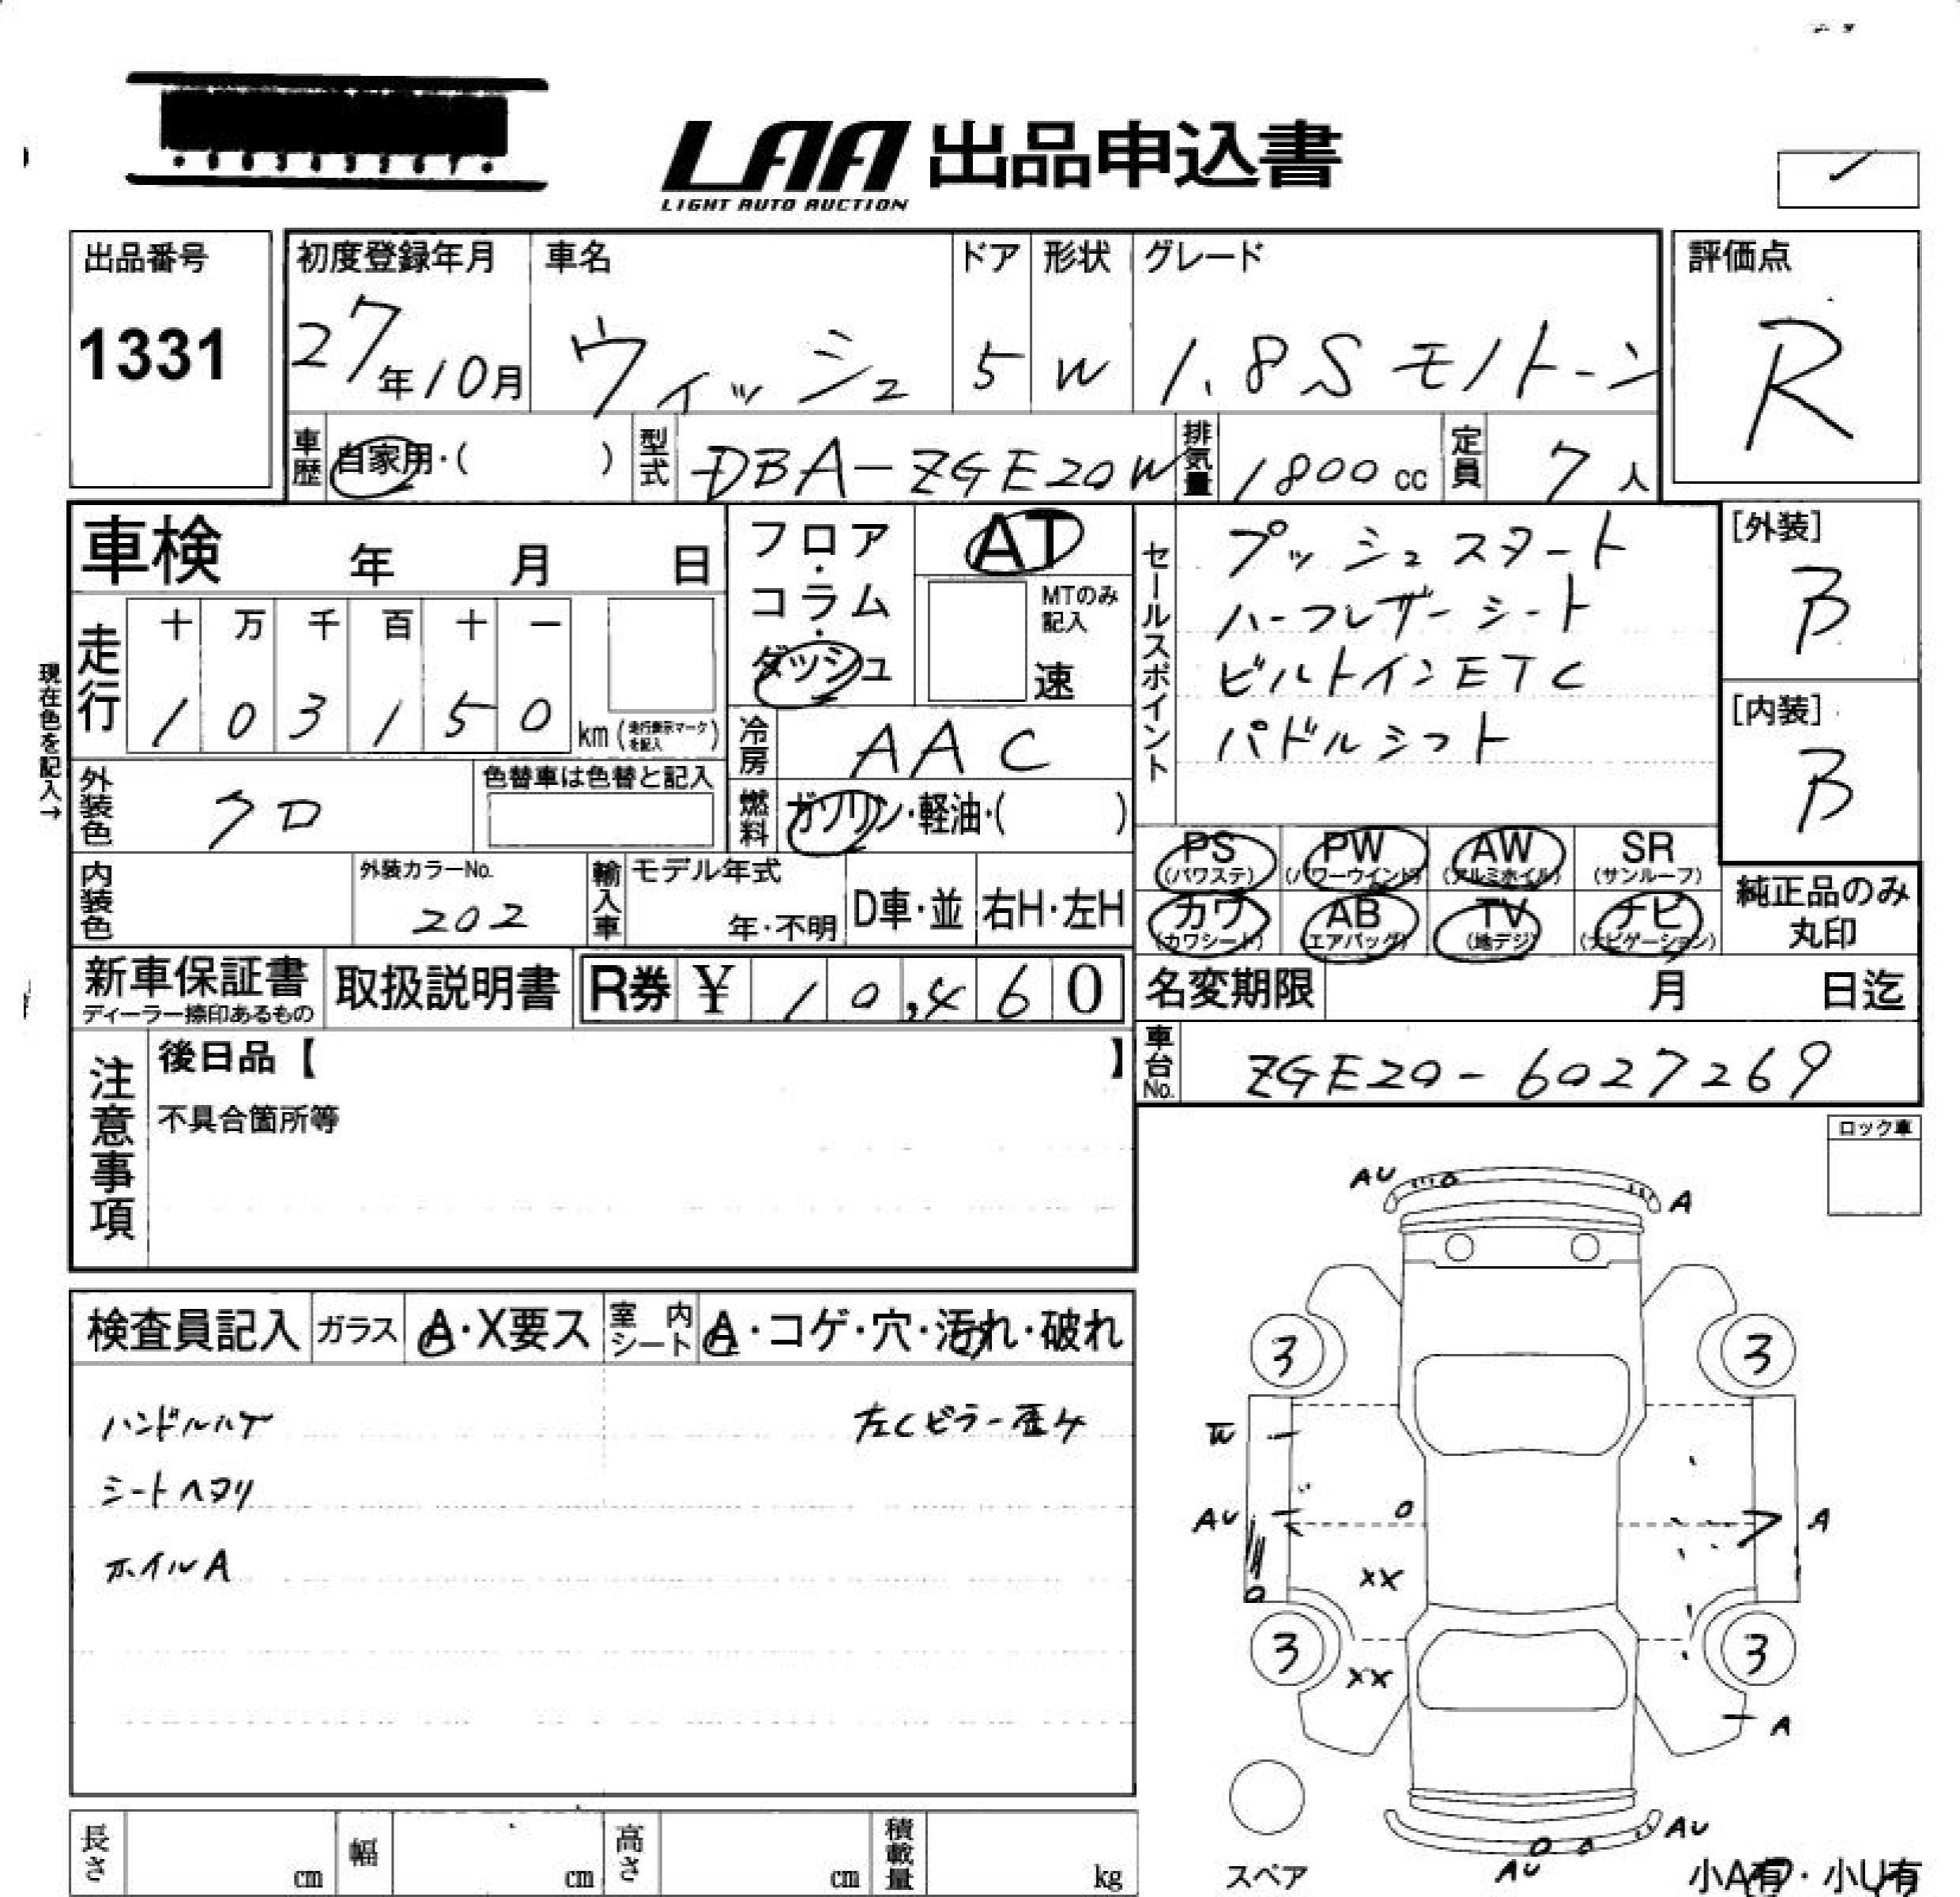 LAA 出品申込書
LIGHT AUTO AUCTION
出品番号
1331
初度登録年月
27年10月
車名
ウィッシュ
ドア
5
形状
W
グレード
1.8S モノトーン
評価点
R
車歴
自家用・( )
型式
DBA-ZGE20W
排気量
1800 cc
定員
7 人
車検 年 月 日
走行
十 万 千 百 十 一
1 0 3 1 5 0
km (走行表示マークを記入)
現在色を記入→
外装色
クロ
色替車は色替と記入
フロア・コラム・ダッシュ
AT
MTのみ記入
速
冷房
AAC
燃料
ガソリン・軽油・( )
セールスポイント
プッシュスタート
ハーフレザーシート
ビルトインETC
パドルシフト
[外装]
B
[内装]
B
内装色
外装カラーNo.
202
輸入車
モデル年式
年・不明
D車・並
右H・左H
PS
(パワステ)
PW
(パワーウインド)
AW
(アルミホイル)
SR
(サンルーフ)
カワ
(カワシート)
AB
(エアバッグ)
TV
(地デジ)
ナビ
(ナビゲーション)
純正品のみ
丸印
新車保証書
ディーラー捺印あるもの
取扱説明書
R券 ¥ 10,460
名変期限 月 日迄
車台No.
ZGE20-6027269
注意事項
後日品【 】
不具合箇所等
ロック車
検査員記入
ガラス
A・X要ス
室内シート
A・コゲ・穴・汚れ・破れ
ハンドルハゲ
左Cピラー歪み
シートヘタリ
ホイルA
AU
A
3
3
W
AU
A
XX
3
3
XX
A
AU
AU
スペア
小A有・小U有
長さ cm
幅 cm
高さ cm
積載量 kg